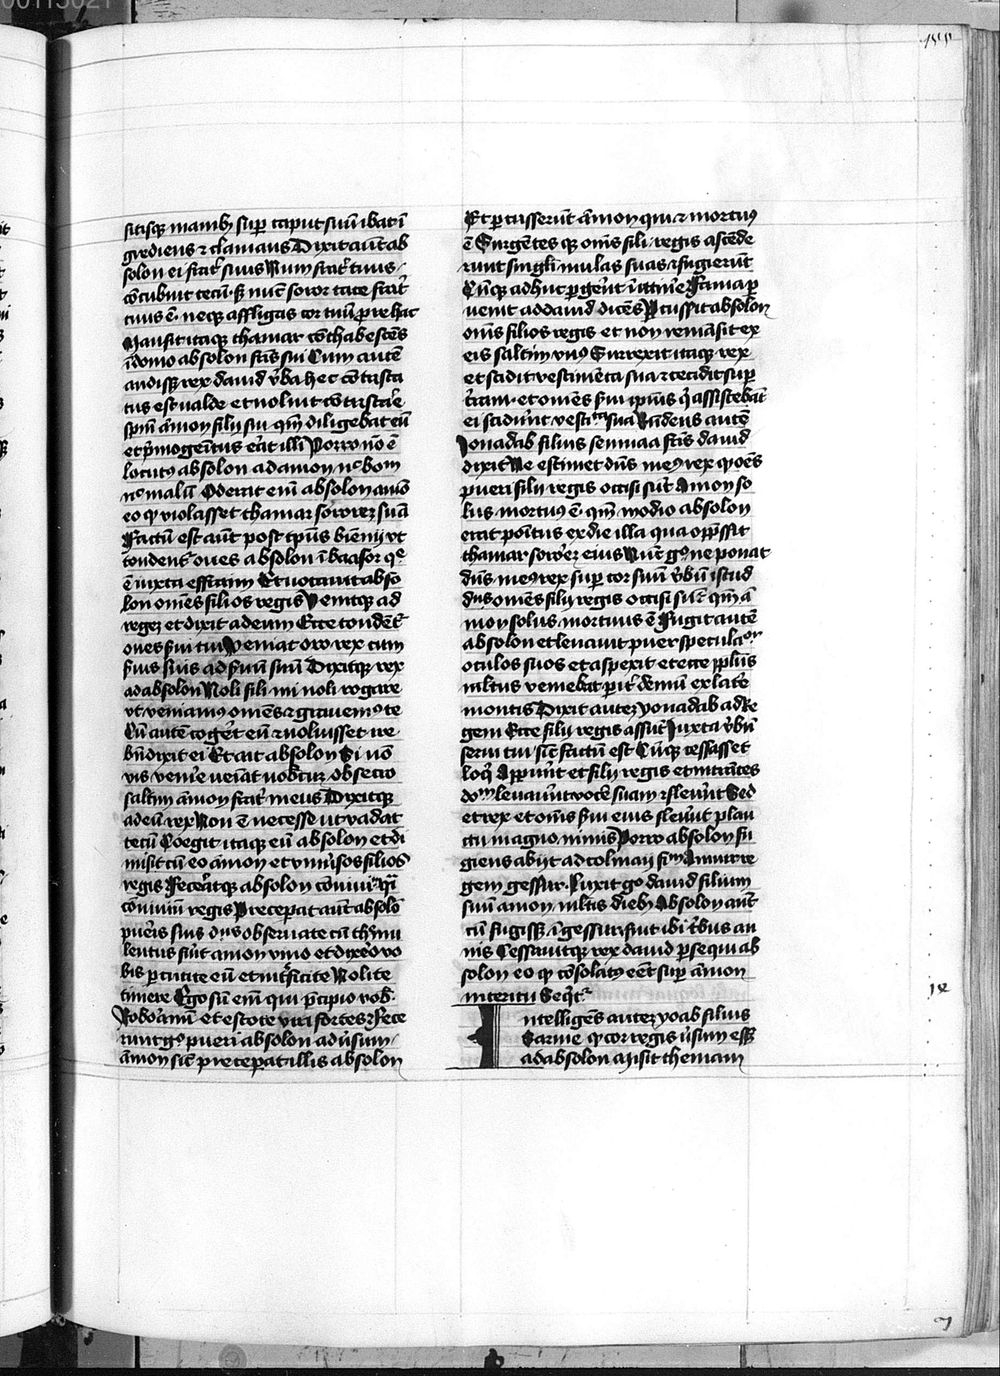 00115021
155
sitisq; manib; sup caput suũ ibat ĩ
grediens ⁊ clamans Dixit aut̃ ab
solon ei frat̃ suus Num frat̃ tuus
cõcubuit tecũ · sꝫ nũc soror tace frat̃
tuus ẽ · neq; affligas cor tuũ p̃ re hac
Mansit itaq; thamar cõthabescẽs
ĩ domo absolon fr̃is sui Cum autẽ
audissꝫ rex dauid v̓ba hec cõtrista
tus est valde et noluit cõtristar̓e
sp̃m ãmon filij sui · qm̃ diligebat eũ
et p̓mogenitus er̓at illi Porro nõ ẽ
locut⁹ absolon ad amon nᶜ bom
nᶜ malũ Oderat eni absolon amõ
eo ꝙ violasset thamar sororeꝫ suã
Factũ est aut̃ post tp̃us bienij vt
tondent̃ oues absolon ĩ baasor qᵉ
ẽ iuxta effraim Et vocauit abso
lon om̃es filios regis Venitq; ad
regeꝫ et dixit ad eum Ecce tondẽt̃
oues s̓ui tui Veniat oro rex cum
s̓uis suis ad s̓uũ suũ Dixitq; rex
ad absolon Noli fili mi noli rogare
vt veniam⁹ om̃es ⁊ grauem⁹ te
Cũ autẽ coger̓et eũ ⁊ noluisset ire
bñdixit ei Et ait absolon Si nõ
vis venir̓e veniat nobcuꝫ obsecro
saltim ãmon frat̃ meus Dixitq;
ad eũ rex Non ẽ necesse ut vadat
tecũ Coegit itaq; eũ absolon et di
misit cũ eo ãmon et vniu̓sos filios
regis Fecer̓atq; absolon cõuiuiũ q̃i
cõuiuiũ regis Preceperat aut̃ absolõ
puer̓is suis dñs obseruate cũ themu
lentus fu̓it amon vino et dixero vo
bis p̱cutite eũ et int̓ficite Nolite
timere Ego sũ em̃ qui p̓cipio vob̃
Roboramĩ et estote viri fortes Fece
runt g̊ pueri absolon adũsum
ãmon sic̃ preceperat illis absolon
Et p̱cusserũt ãmon qui ⁊ mortu⁹
ẽ Surgẽtes q; om̃s filij regis ascẽde
runt singli mulas suas ⁊ fugierũt
Cũq; adhuc p̱ger̓ent ĩ itiner̓e Fama p̱
uenit ad dauid dicẽs P̱cussit absolon
om̃s filios regis et non remãsit ex
eis saltim vn⁹ Surrexit itaq; rex
et scidit vestimẽta sua ⁊ cecidit sup
t̓ram · et om̃es s̓ui ip̃ius q̓ assistebãt
ei scider̓unt vestiᵗᵃ sua Rñdens autẽ
Jonadab filius semmaa fr̃is dauid
dixit Ne estimet dñs me⁹ rex ꝙ oẽs
pueri filij regis occisi sũt Amon so
lus mortu⁹ ẽ qm̃ ĩ odio absolon
erat po̓itus ex die illa qua opp̃ssit
thamar soror̓ẽ eius Nũc g̊ ne ponat
dñs me⁹ rex sup cor suũ v̓bũ istud
dñs om̃es filij regis occisi sũt qm̃ a
mon solus mortuus ẽ Fugit autẽ
absolon et leuauit puer speculaᵒʳ
oculos suos et aspexit et ecce pp̃lus
mltus veniebat p̱ it̓ deuiũ ex later̓e
montis Dixit auteꝫ yonadab ad Re
gem Ecce filij regis assũt Juxta v̓bũ
serui tui sic̃ factũ est Cũq; cessasset
loq̓ Apparuer̓unt et filij regis et intrantes
doᵐ leuau̓unt vocẽ suam ⁊ fleu̓unt Sed
et rex et om̃s s̓ui eius fleuer̓unt plan
ctu magno nimis Porro absolon fu
giens abijt ad tolmaij fiᵐ Amiur re
gem gessur · Luxit g̊ dauid filium
suũ amon mltis dieb; Absolon aut̃
cũ fugissꝫ ĩ gessur fuit ibi t̓bus an
nis Cessauitq; rex dauid p̱sequi ab
solon eo ꝙ cõsolat⁹ eẽt sup ãmon
interitu Seq̓t̃
Intelligẽs auteꝫ yoab filius
Saruie ꝙ cor regis ũsum essꝫ
ad absolon misit themam
ix